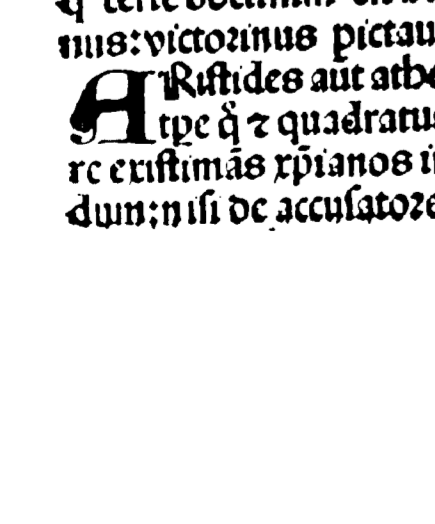 nus:victorinus pictau
ARistides aut ath
tpe q̄ ⁊ quadratu
re existimās xp̄ianos i
dum:nisi de accusatore